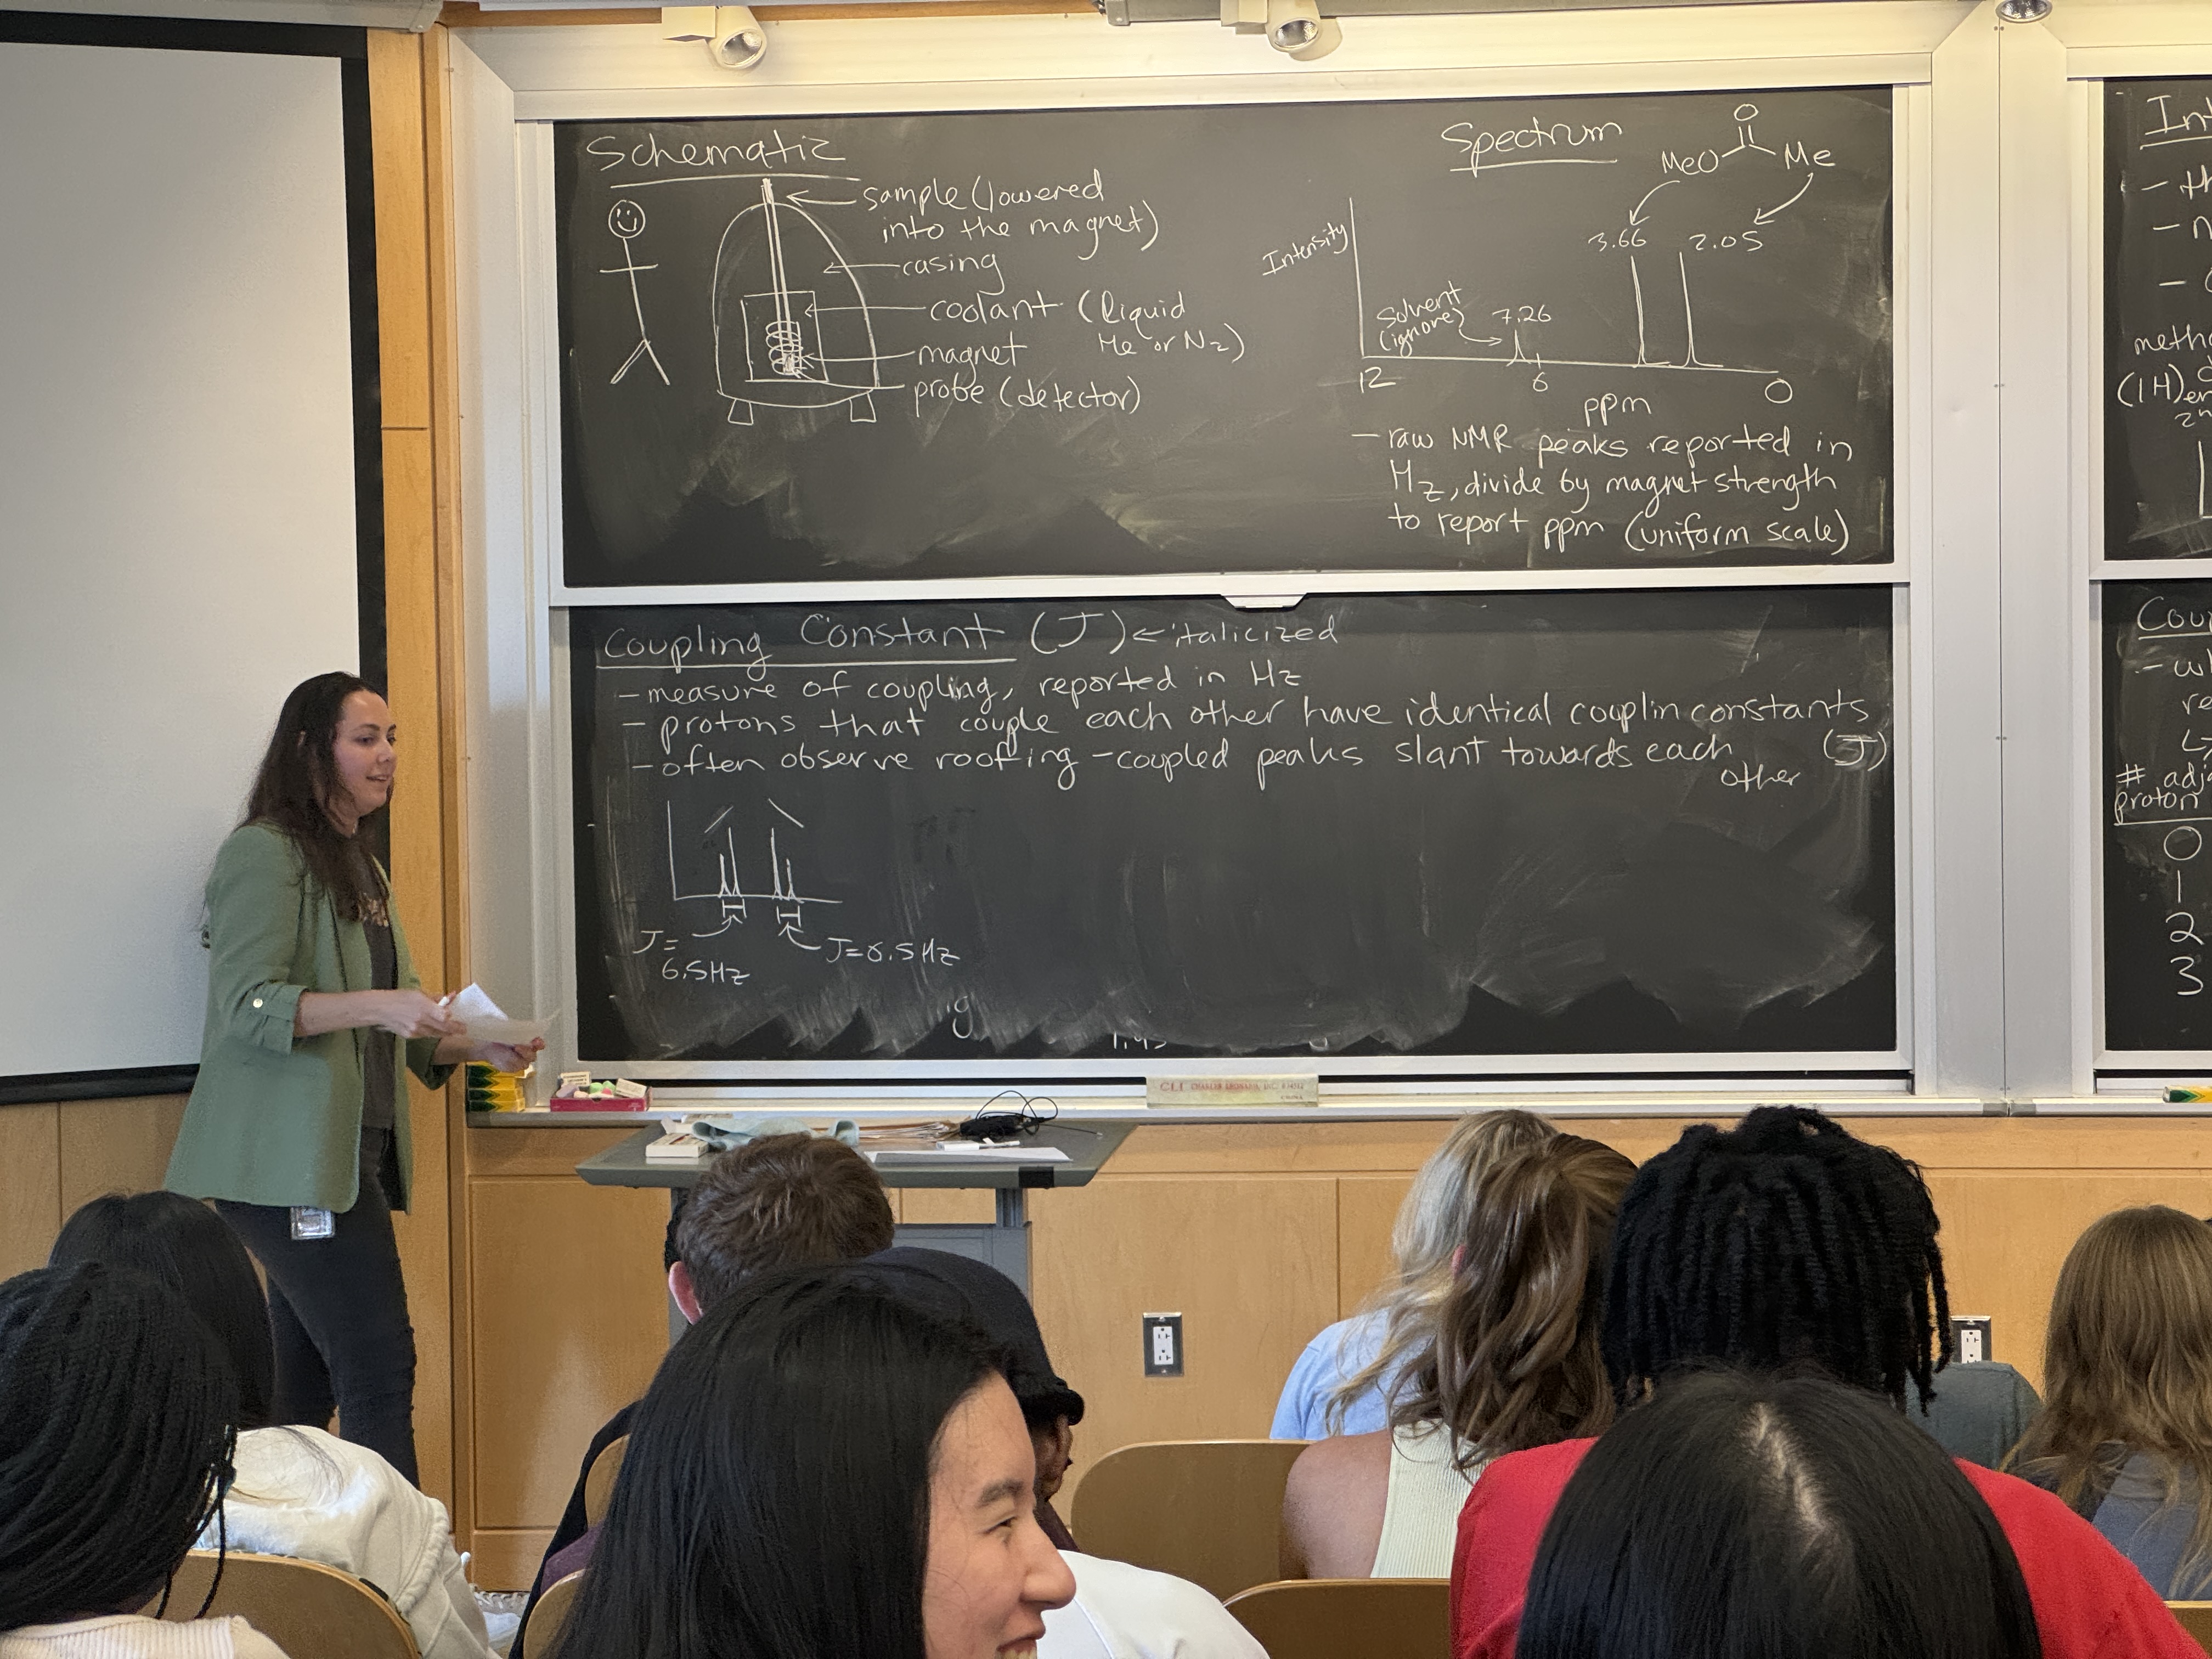 Schematic
sample (lowered
into the magnet)
casing
coolant (liquid
He or N2)
magnet
probe (detector)
Spectrum
O
MeO Me
Intensity
3.66 2.05
Solvent
(ignore)
7.26
12 6 0
ppm
- raw NMR peaks reported in
Hz, divide by magnet strength
to report ppm (uniform scale)
Coupling Constant (J) ← italicized
- measure of coupling, reported in Hz
- protons that couple each other have identical couplin constants
(J)
- often observe roofing - coupled peaks slant towards each
other
J=
6.5Hz
J=6.5Hz
g
CLI
Int
(1H)
# adj
proton
0
1
2
3